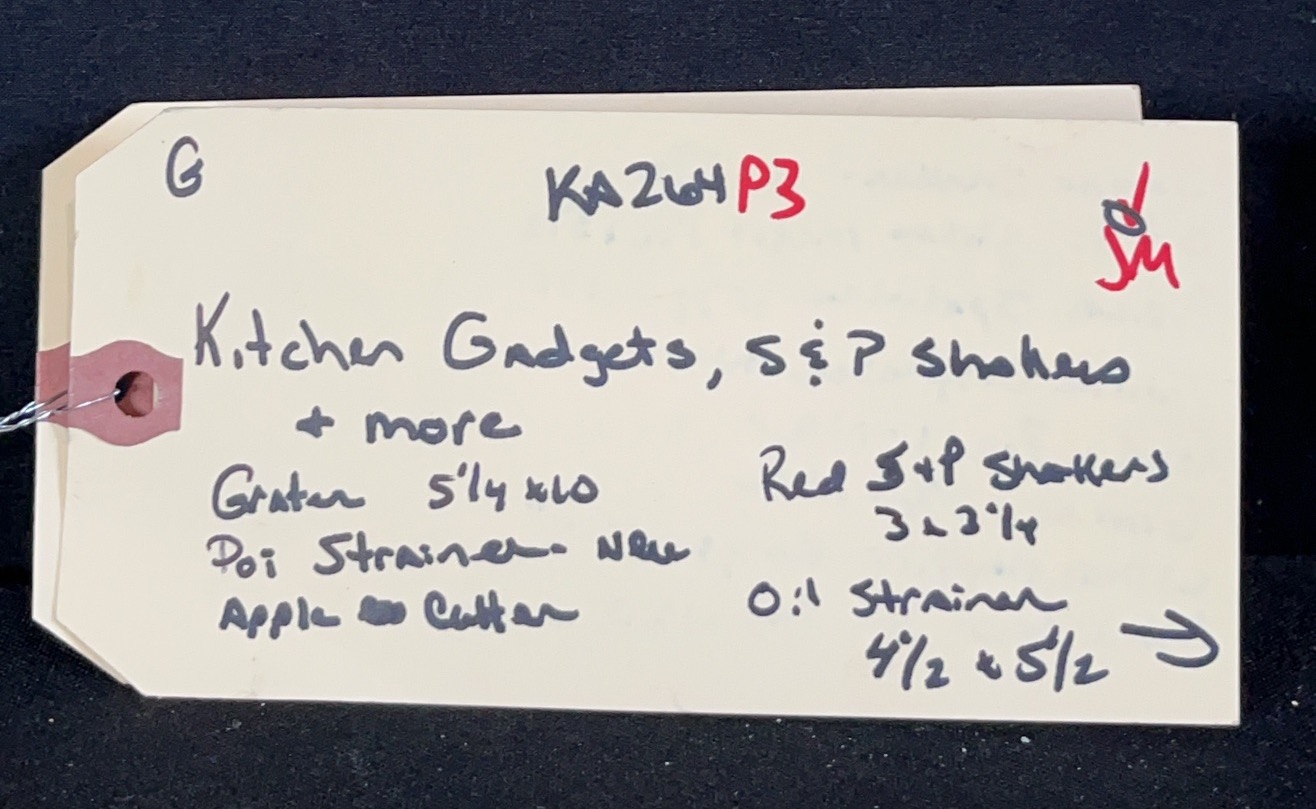 G
KA264P3
SM
Kitchen Gadgets, S & P Shakers
+ more
Grater 5 1/4 x 10
Poi Strainer - New
Apple Cutter
Red S+P Shakers
3 x 3 1/4
Oil Strainer
4 1/2 x 5 1/2 →